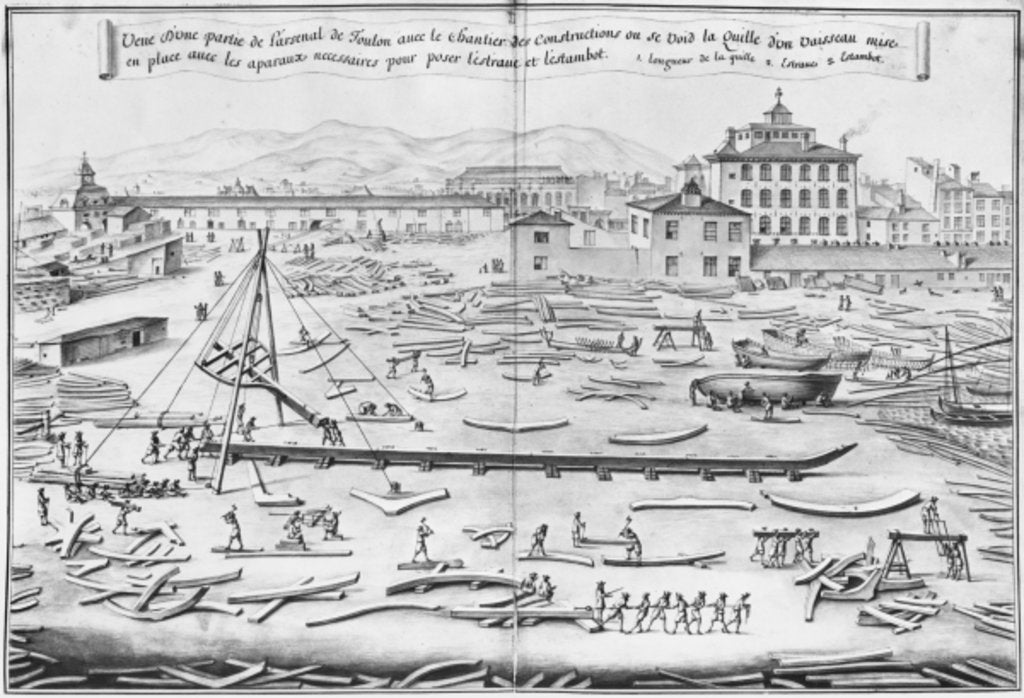 Veue D'une partie de l'arsenal de Toulon auec le Chantier des Constructions ou se Void la Quille d'vn Vaisseau mise
en place auec les aparaux necessaires pour poser l'estraue et l'estambot. 1. longueur de la quille 2. Estraue 3. Estambot.